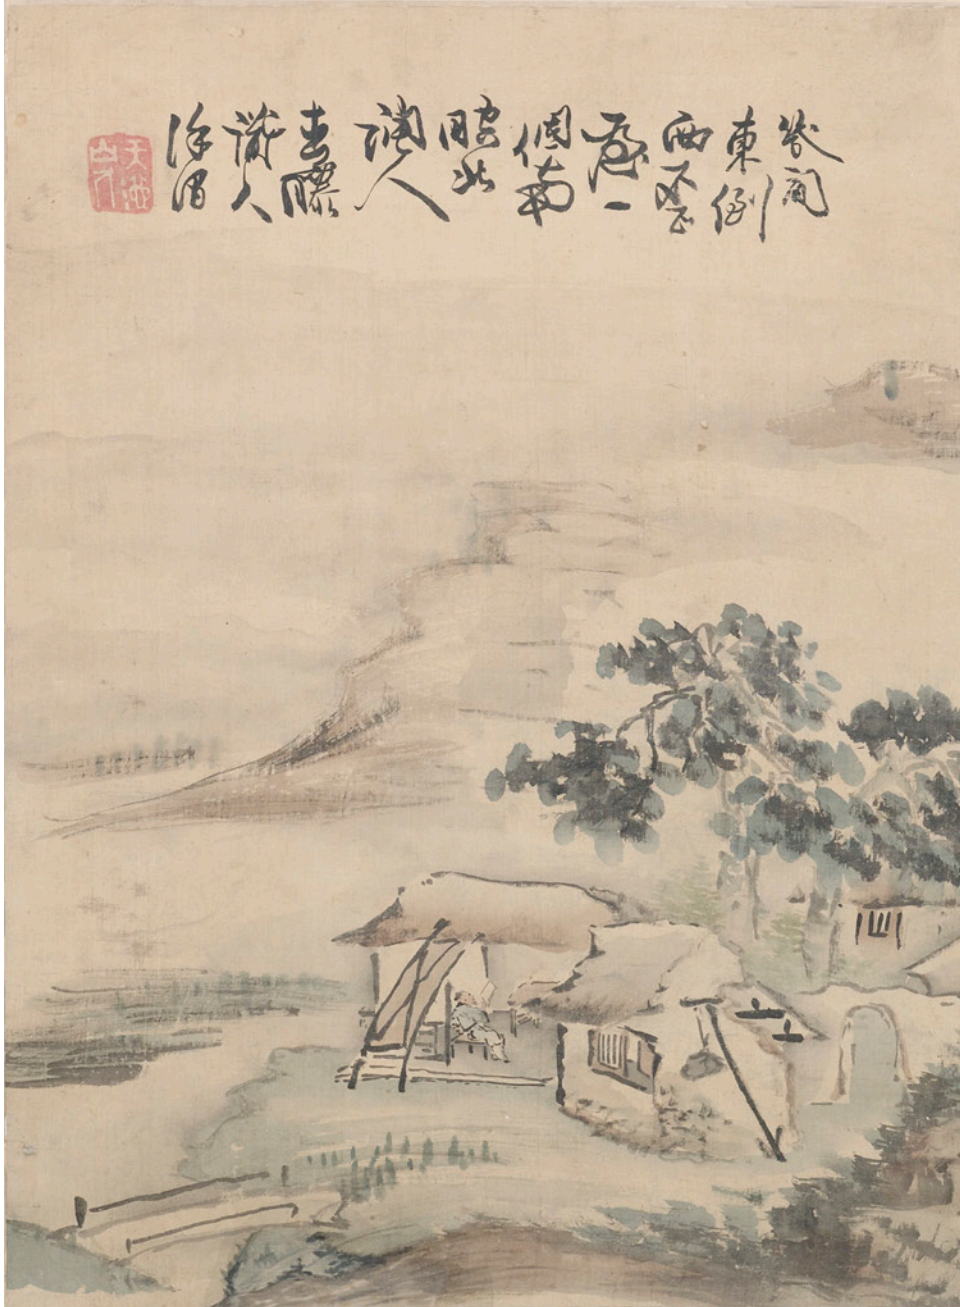 幾間
東倒
西歪
屋一
個南
腔北
調人
青藤
人
徐渭
天池山人